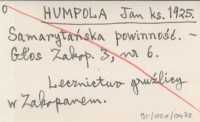 0
HUMPOLA Jan ks. 1925.
Samarytańska powinność. –
Głos Zakop. 3, nr 6.
Lecznictwo gruźlicy
w Zakopanem.